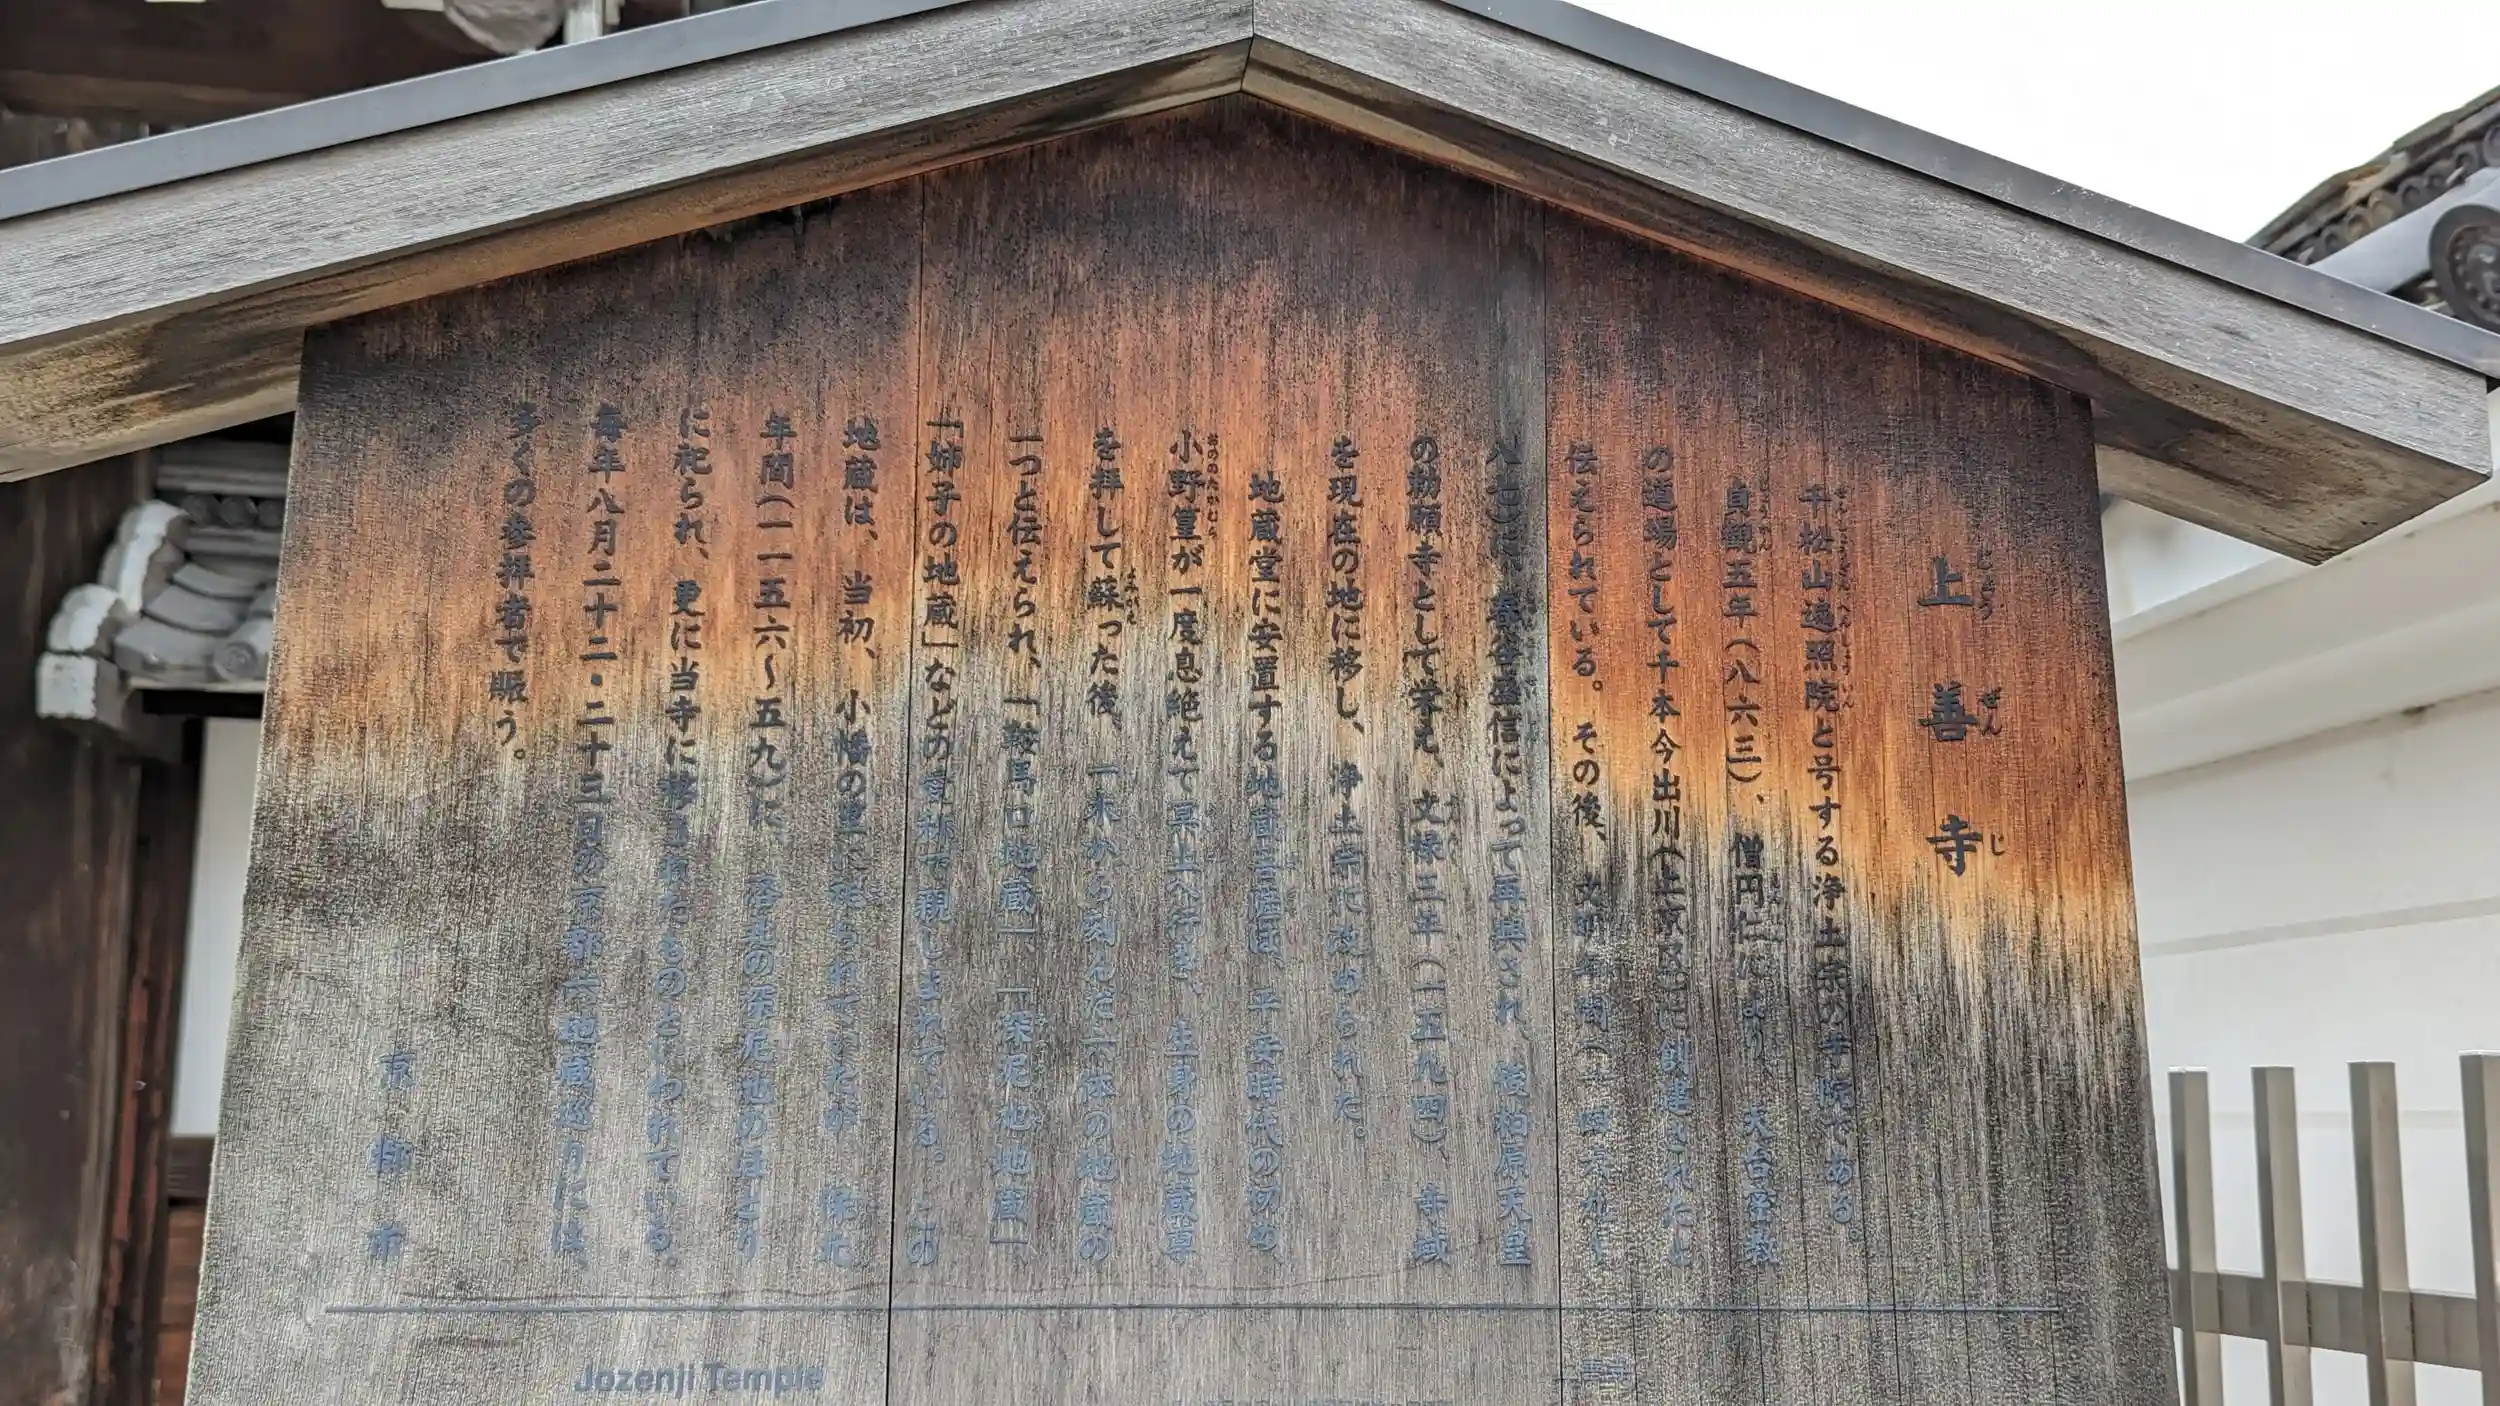 上善寺
じょうぜんじ
千松山遍照院と号する浄土宗の寺院である。
せんしょうざんへんしょういん
貞観五年(八六三)、僧円仁により、天台密教
じょうがん
の道場として千本今出川(上京区)に創建されたと
伝えられている。その後、文明年間(一四六九~
八七)に、春谷盛信によって再興され、後柏原天皇
の勅願寺として栄え、文禄三年(一五九四)、寺域
を現在の地に移し、浄土宗に改められた。
地蔵堂に安置する地蔵菩薩は、平安時代の初め、
小野篁が一度息絶えて冥土へ行き、生身の地蔵尊
おののたかむら
を拝して蘇った後、一木から刻んだ六体の地蔵の
よみがえ
一つと伝えられ、「鞍馬口地蔵」、「深泥池地蔵」、
「姉子の地蔵」などの愛称で親しまれている。この
地蔵は、当初、小幡の里に祀られていたが、保元
年間(一一五六~五九)に、洛北の深泥池のほとり
に祀られ、更に当寺に移されたものといわれている。
毎年八月二十二・二十三日の京都六地蔵巡りには、
多くの参拝者で賑う。
京都市
Jozenji Temple